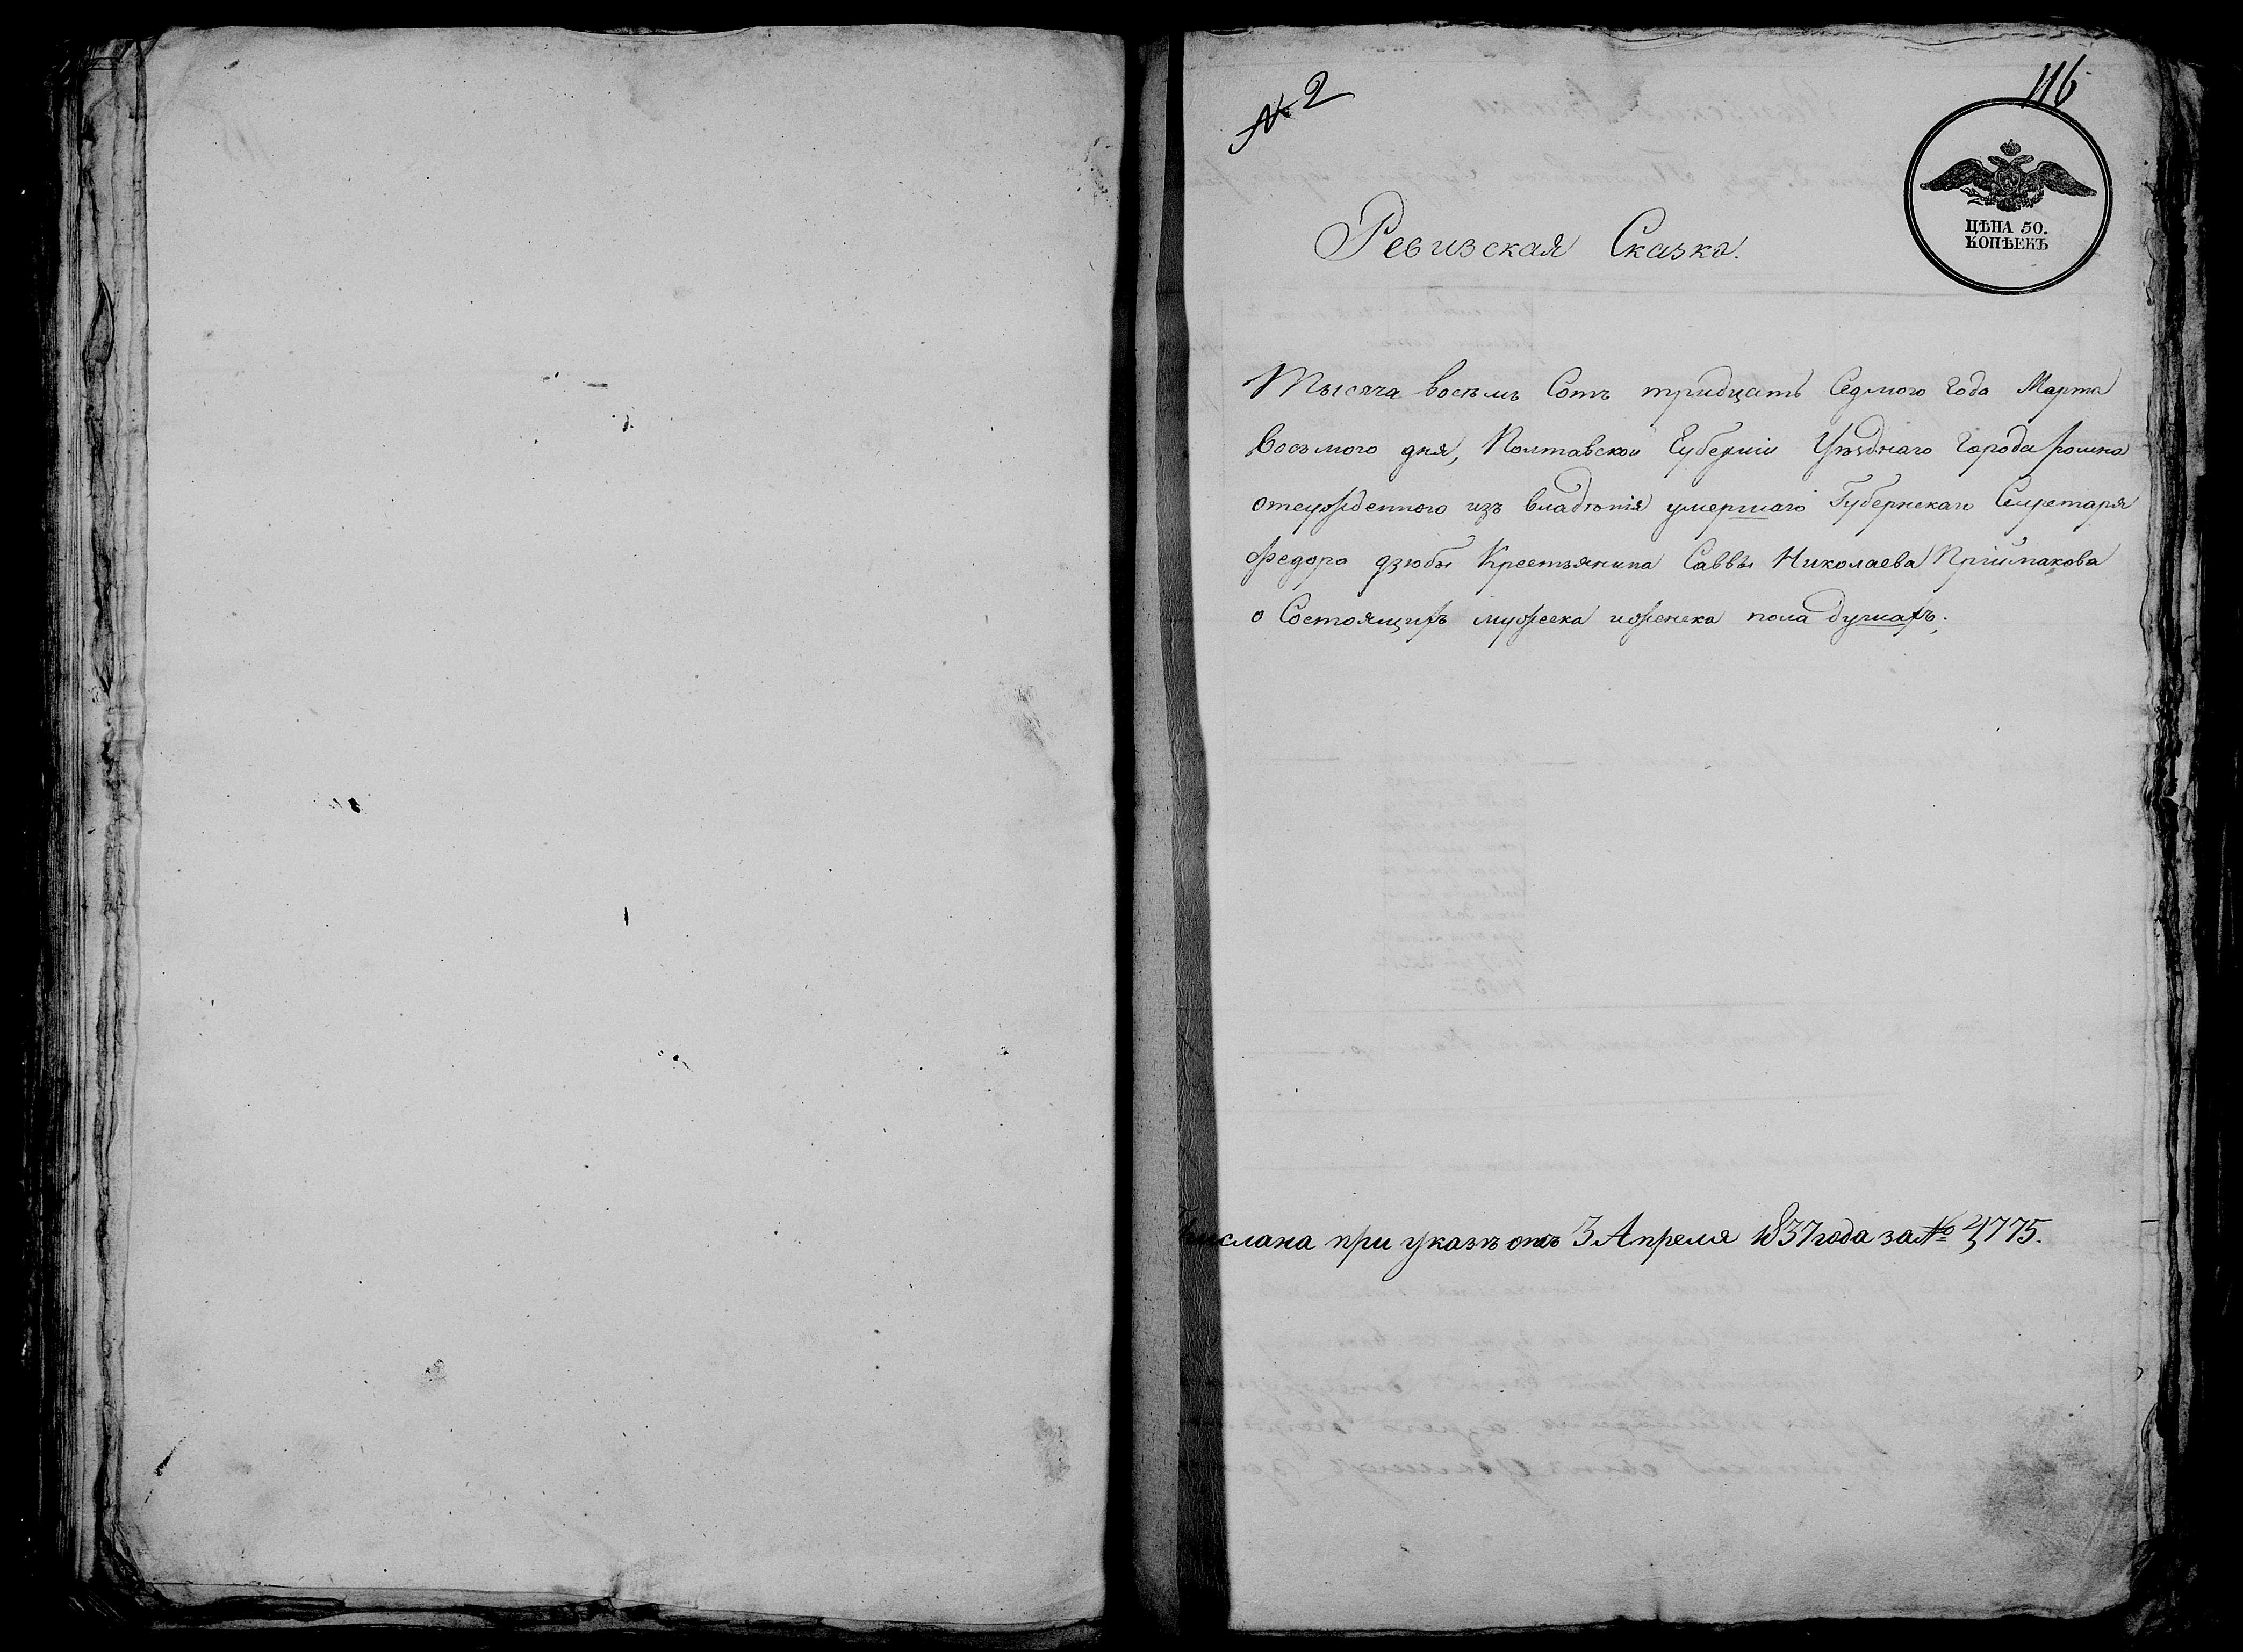 № 2
116
ЦѢНА 50.
КОПѢЕКЪ
Ревизская Сказка.
Тысяча восемь Сотъ тридцать Седмого года Марта
Восьмого дня, Полтавской Губерніи Уѣзднаго города ромна
отсужденного изъ владѣнія умершаго Губернскаго Секретаря
Федора дзюбы Крестьянина Саввы Николаева Пріймакова
о Состоящихъ мужеска и женска пола душахъ.
при указѣ отъ 3 Апреля 1837 года за № 4775.